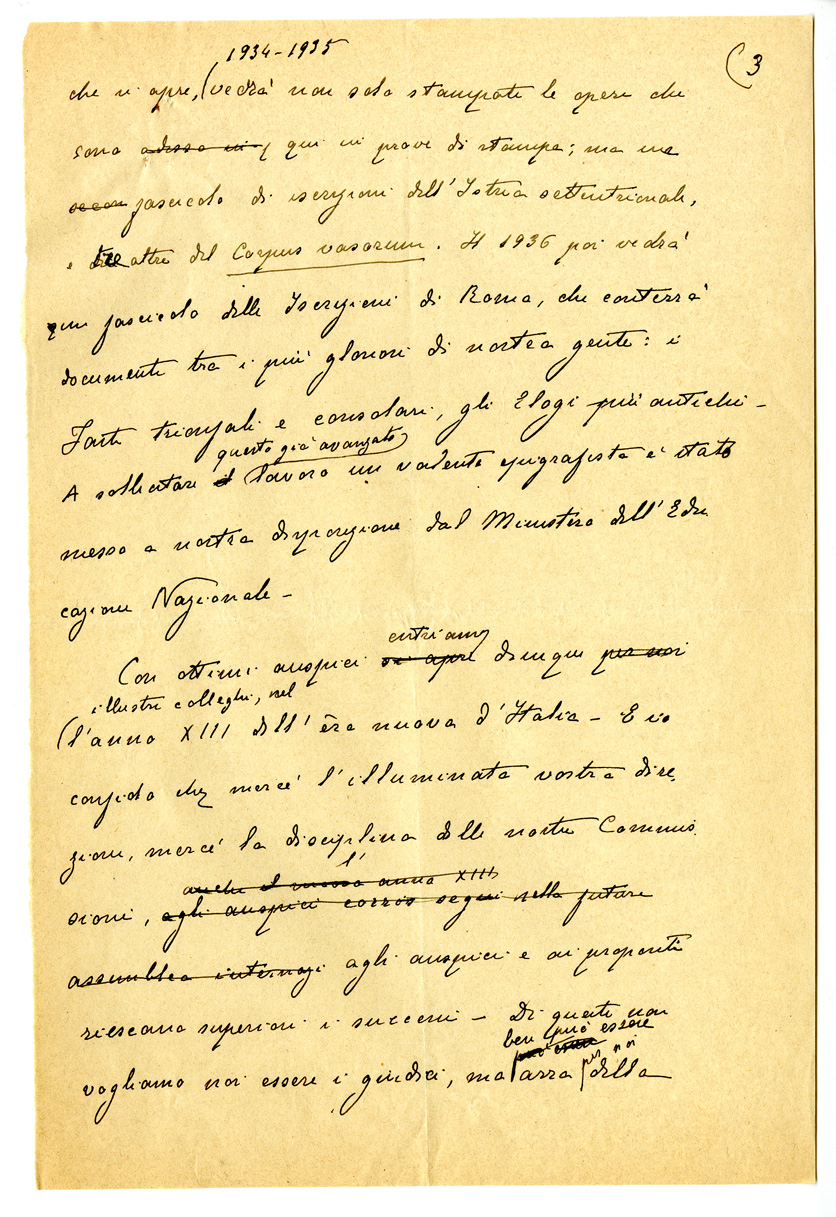 (3
1934-1935
che si apre, (vedrà non solo stampate le opere che
sono adesso in qui in prove di stampa; ma un
fascicolo di iscrizioni dell'Istria settentrionale,
e tre altri del Corpus vasorum. Il 1936 poi vedrà
un fascicolo delle Iscrizioni di Roma, che conterrà
documenti tra i più gloriosi di nostra gente: i
Fasti trionfali e consolari, gli Elogi più antichi -
questo già avanzato
A sollecitare il lavoro un valente epigrafista è stato
messo a nostra disposizione dal Ministero dell'Edu
cazione Nazionale -
entriamo
Con ottimi auspici si apre dunque per noi
illustri colleghi, nel
(l'anno XIII dell'èra nuova d'Italia - E io
confido che mercè l'illuminata vostra dire
zione, mercè la disciplina delle nostre Commis
l'
anche il nuovo anno XIII
sioni, agli auspici corris segni nella future
assemblea internazi agli auspici e ai propositi
riescano superiori i successi - Di questi non
ben può essere
per noi
vogliamo noi essere i giudici, ma della